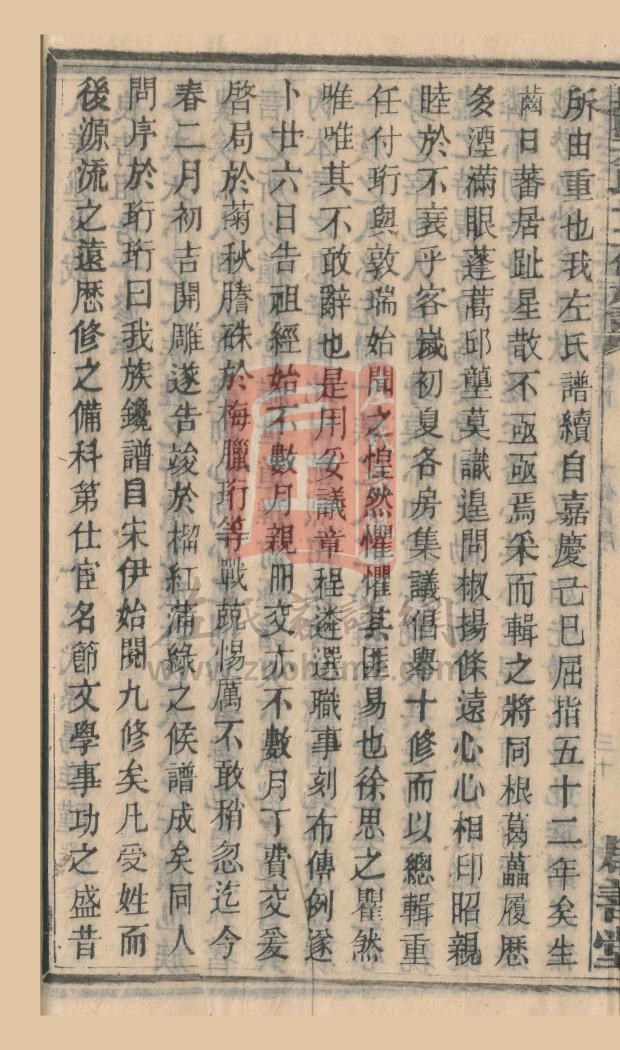 所由重也我左氏譜續自嘉慶己巳屈指五十二年矣生
齒日蕃居趾星散不亟亟焉采而輯之將同根葛藟履歷
多湮滿眼蓬蒿邱壟莫識遑問椒揚條遠心心相印昭親
睦於不衰乎客歲初夏各房集議倡舉十修而以總輯重
任付珩與敦瑞始聞之惶然懼懼其匪易也徐思之瞿然
唯唯其不敢辭也是用妥議章程遴選職事刻布傳例遂
卜廿六日告祖經始不數月親冊交亦不數月丁費交爰
啓局於菊秋謄硃於梅臘珩等戰兢惕厲不敢稍忽迄今
春二月初吉開雕遂告竣於榴紅蒲綠之候譜成矣同人
問序於珩珩曰我族鑱譜自宋伊始閱九修矣凡受姓而
後源流之遠歷修之備科第仕宦名節文學事功之盛昔
左氏家譜網
www.zuohome.com